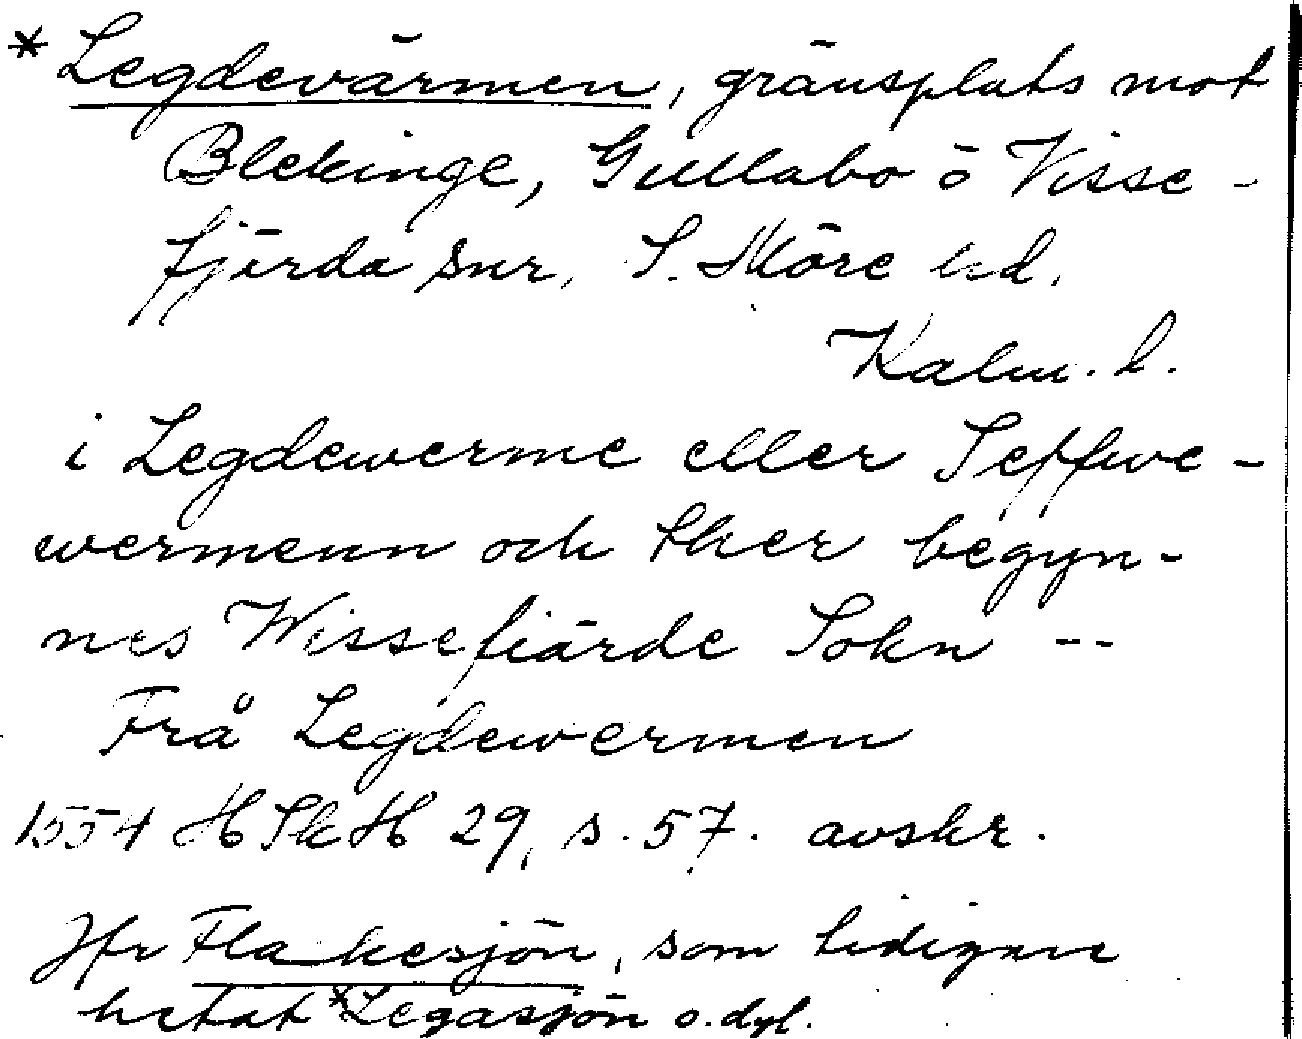 * Legdevärmen, gränsplats mot
Blekinge, Gullabo o Visse-
fjärda snr, S. Möre hd.
Kalm. l.
i Legdewerme eller Seffwe-
wermenn och ther begyn-
nes Wissefiärde Sokn --
Frå Legdewermen
1554 HSkH 29, s. 57. avskr.
Jfr Flakesjön, som tidigare
hetat *Legasjön o.dyl.